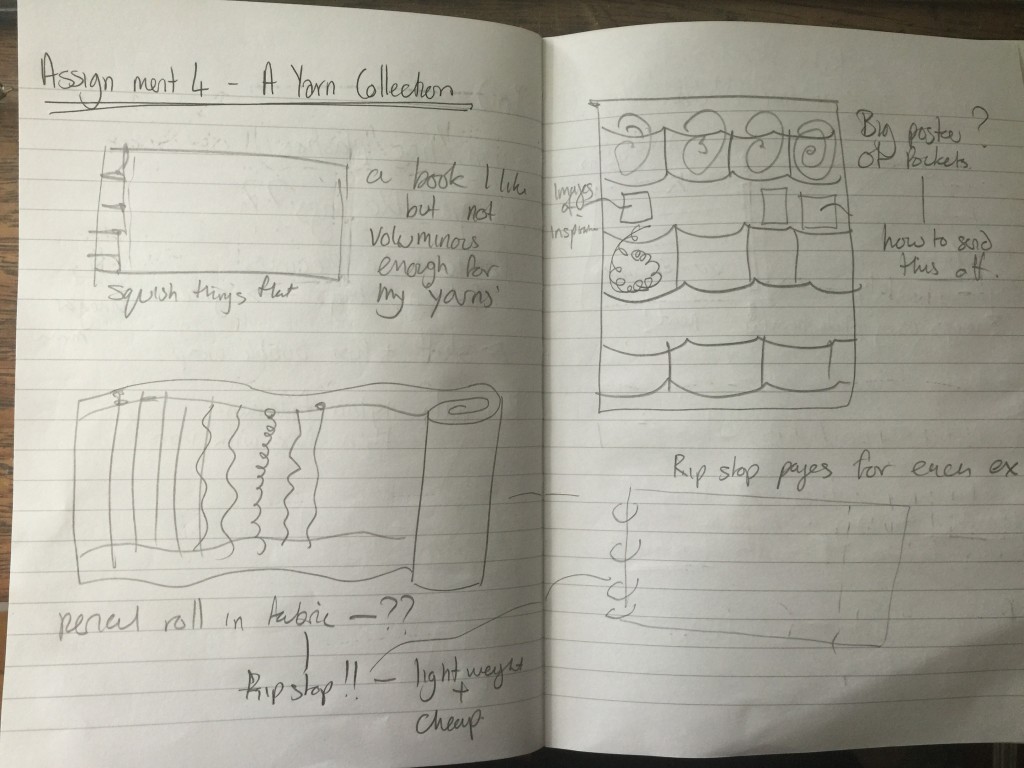 Assignment 4 - A Yarn Collection
a book I like
but not
voluminous
enough for
my yarns'
squish things flat
pencil roll in fabric - ??
Rip stop!! - light weight
+
cheap.
Big poster?
of pockets.
Images
of
how to send
this off.
Rip stop pages for each ex